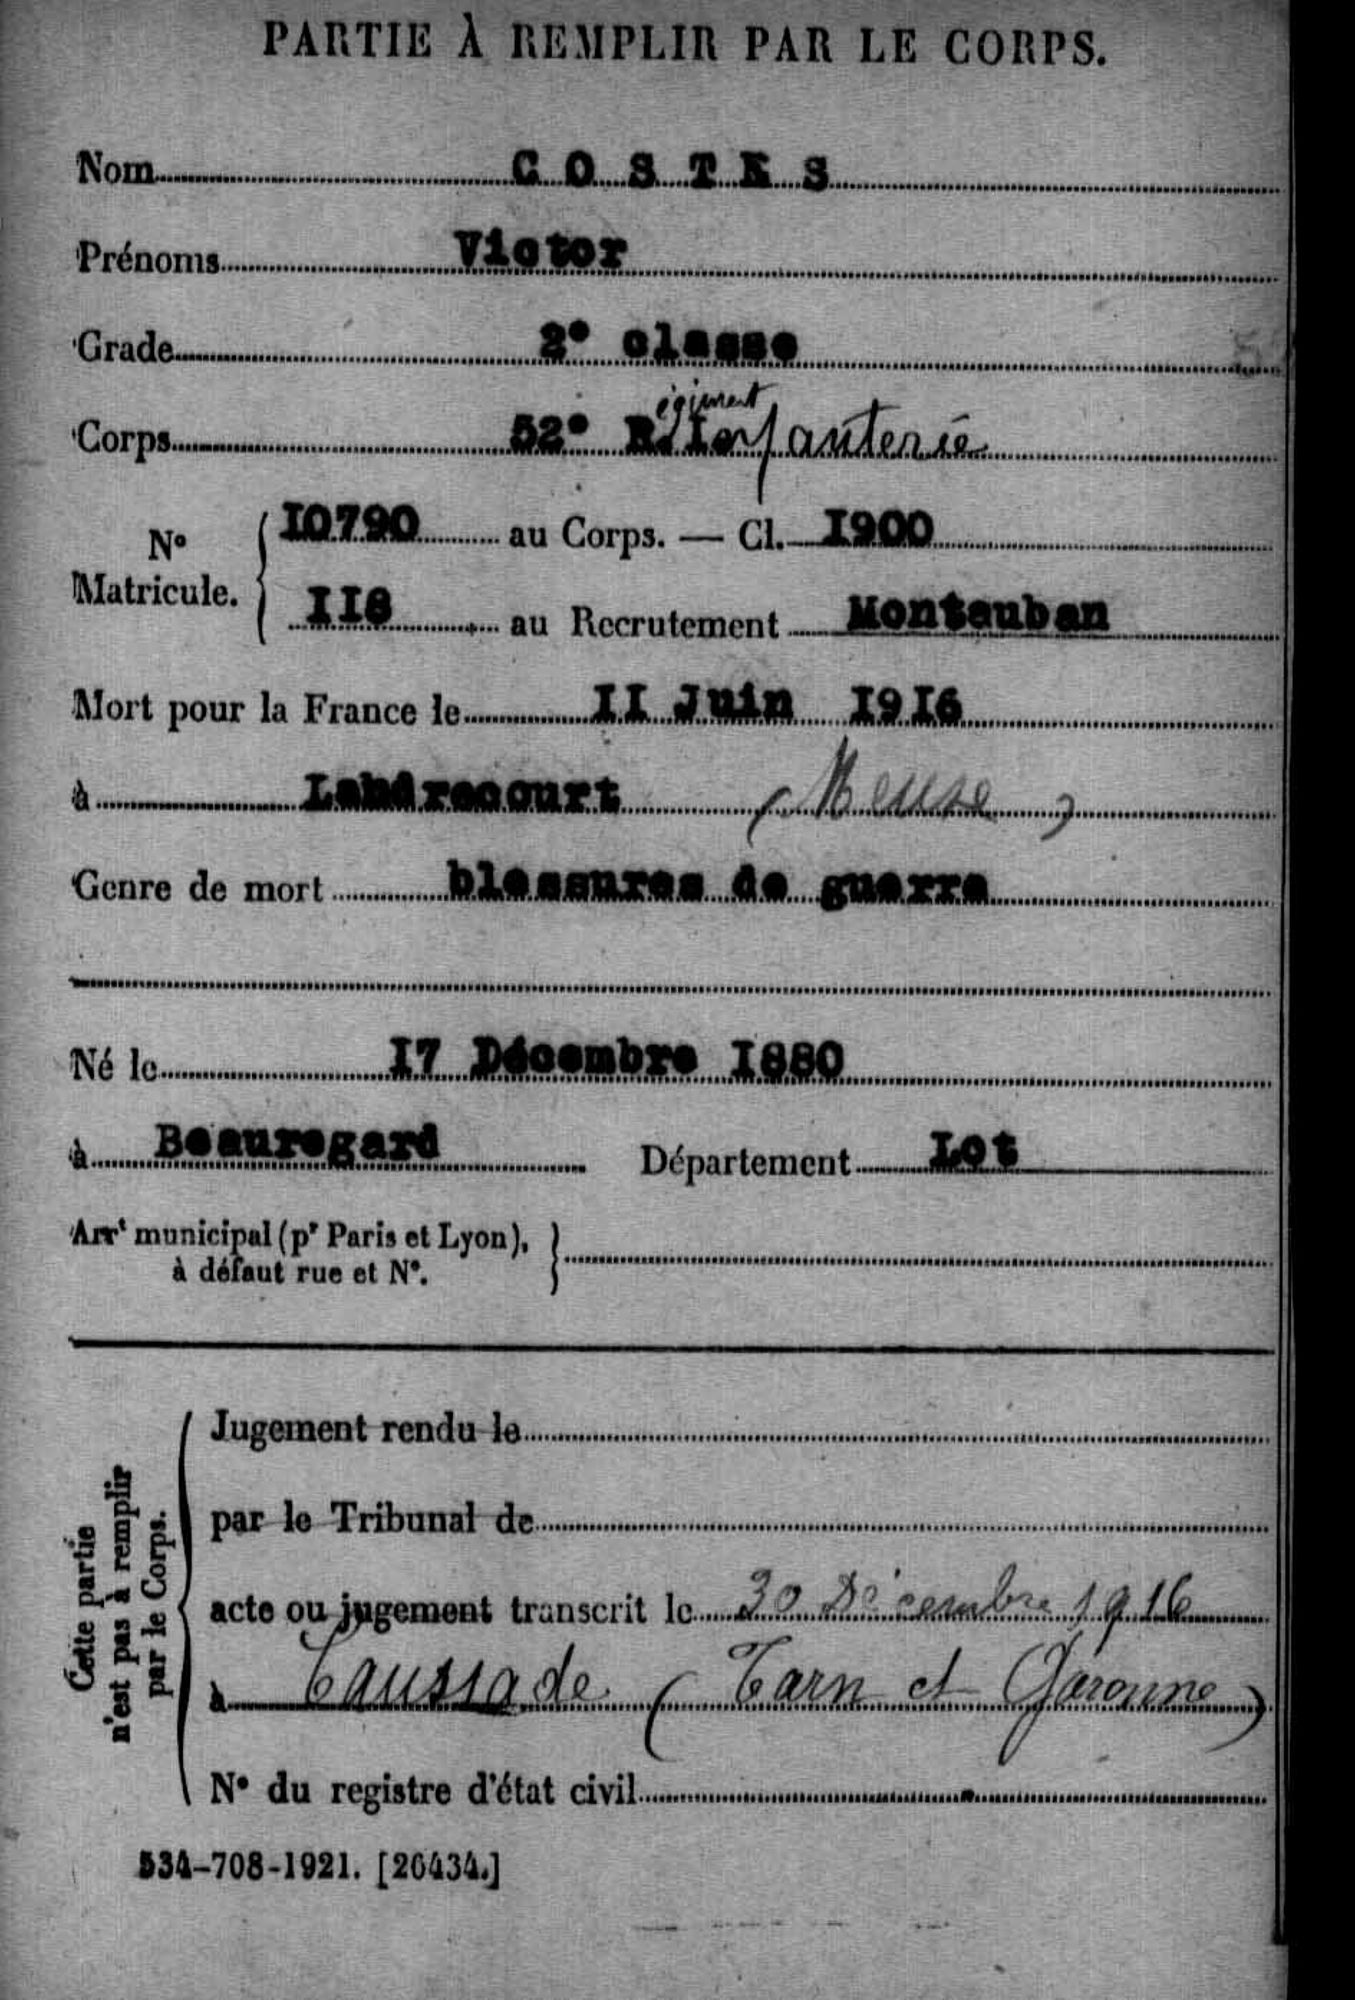 PARTIE À REMPLIR PAR LE CORPS.
Nom COSTES
Prénoms Victor
Grade 2e classe
Corps 52e Régiment d'Infanterie
No Matricule. { 10790 au Corps. — Cl. 1900
118 au Recrutement Montauban
Mort pour la France le II Juin 1916
à Landrecourt (Meuse)
Genre de mort blessures de guerre
Né le 17 Décembre 1880
à Beauregard Département Lot
Arrt municipal (pr Paris et Lyon), à défaut rue et No.
Cette partie n'est pas à remplir par le Corps.
Jugement rendu le
par le Tribunal de
acte ou jugement transcrit le 30 Décembre 1916
à Caussade (Tarn et Garonne)
No du registre d'état civil
534-708-1921. [26434.]